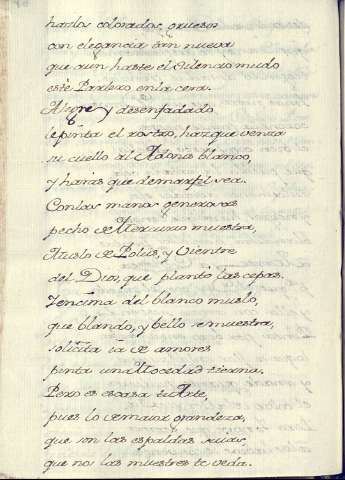 hazlos colorados, gruesos
con elegancia tan nueva
que aun hasta el silencio mudo
este Parlero en la cera.
Alegre y desenfadado
le pinta el rostro, haz que venza
su cuello al Adonis blanco,
y harias que de marfil sea.
Con las manos generosas
pecho de Mercurio muestra,
Muslo de Polus, y Vientre
del Dios, que planto las cepas.
Y encima del blanco muslo,
que blando, y bello se muestra,
solicita ia de amores
pinta una Mocedad tierna.
Pero es escasa tu Arte,
pues lo de maior grandeza,
que son las espaldas suias,
que no las muestres te veda.